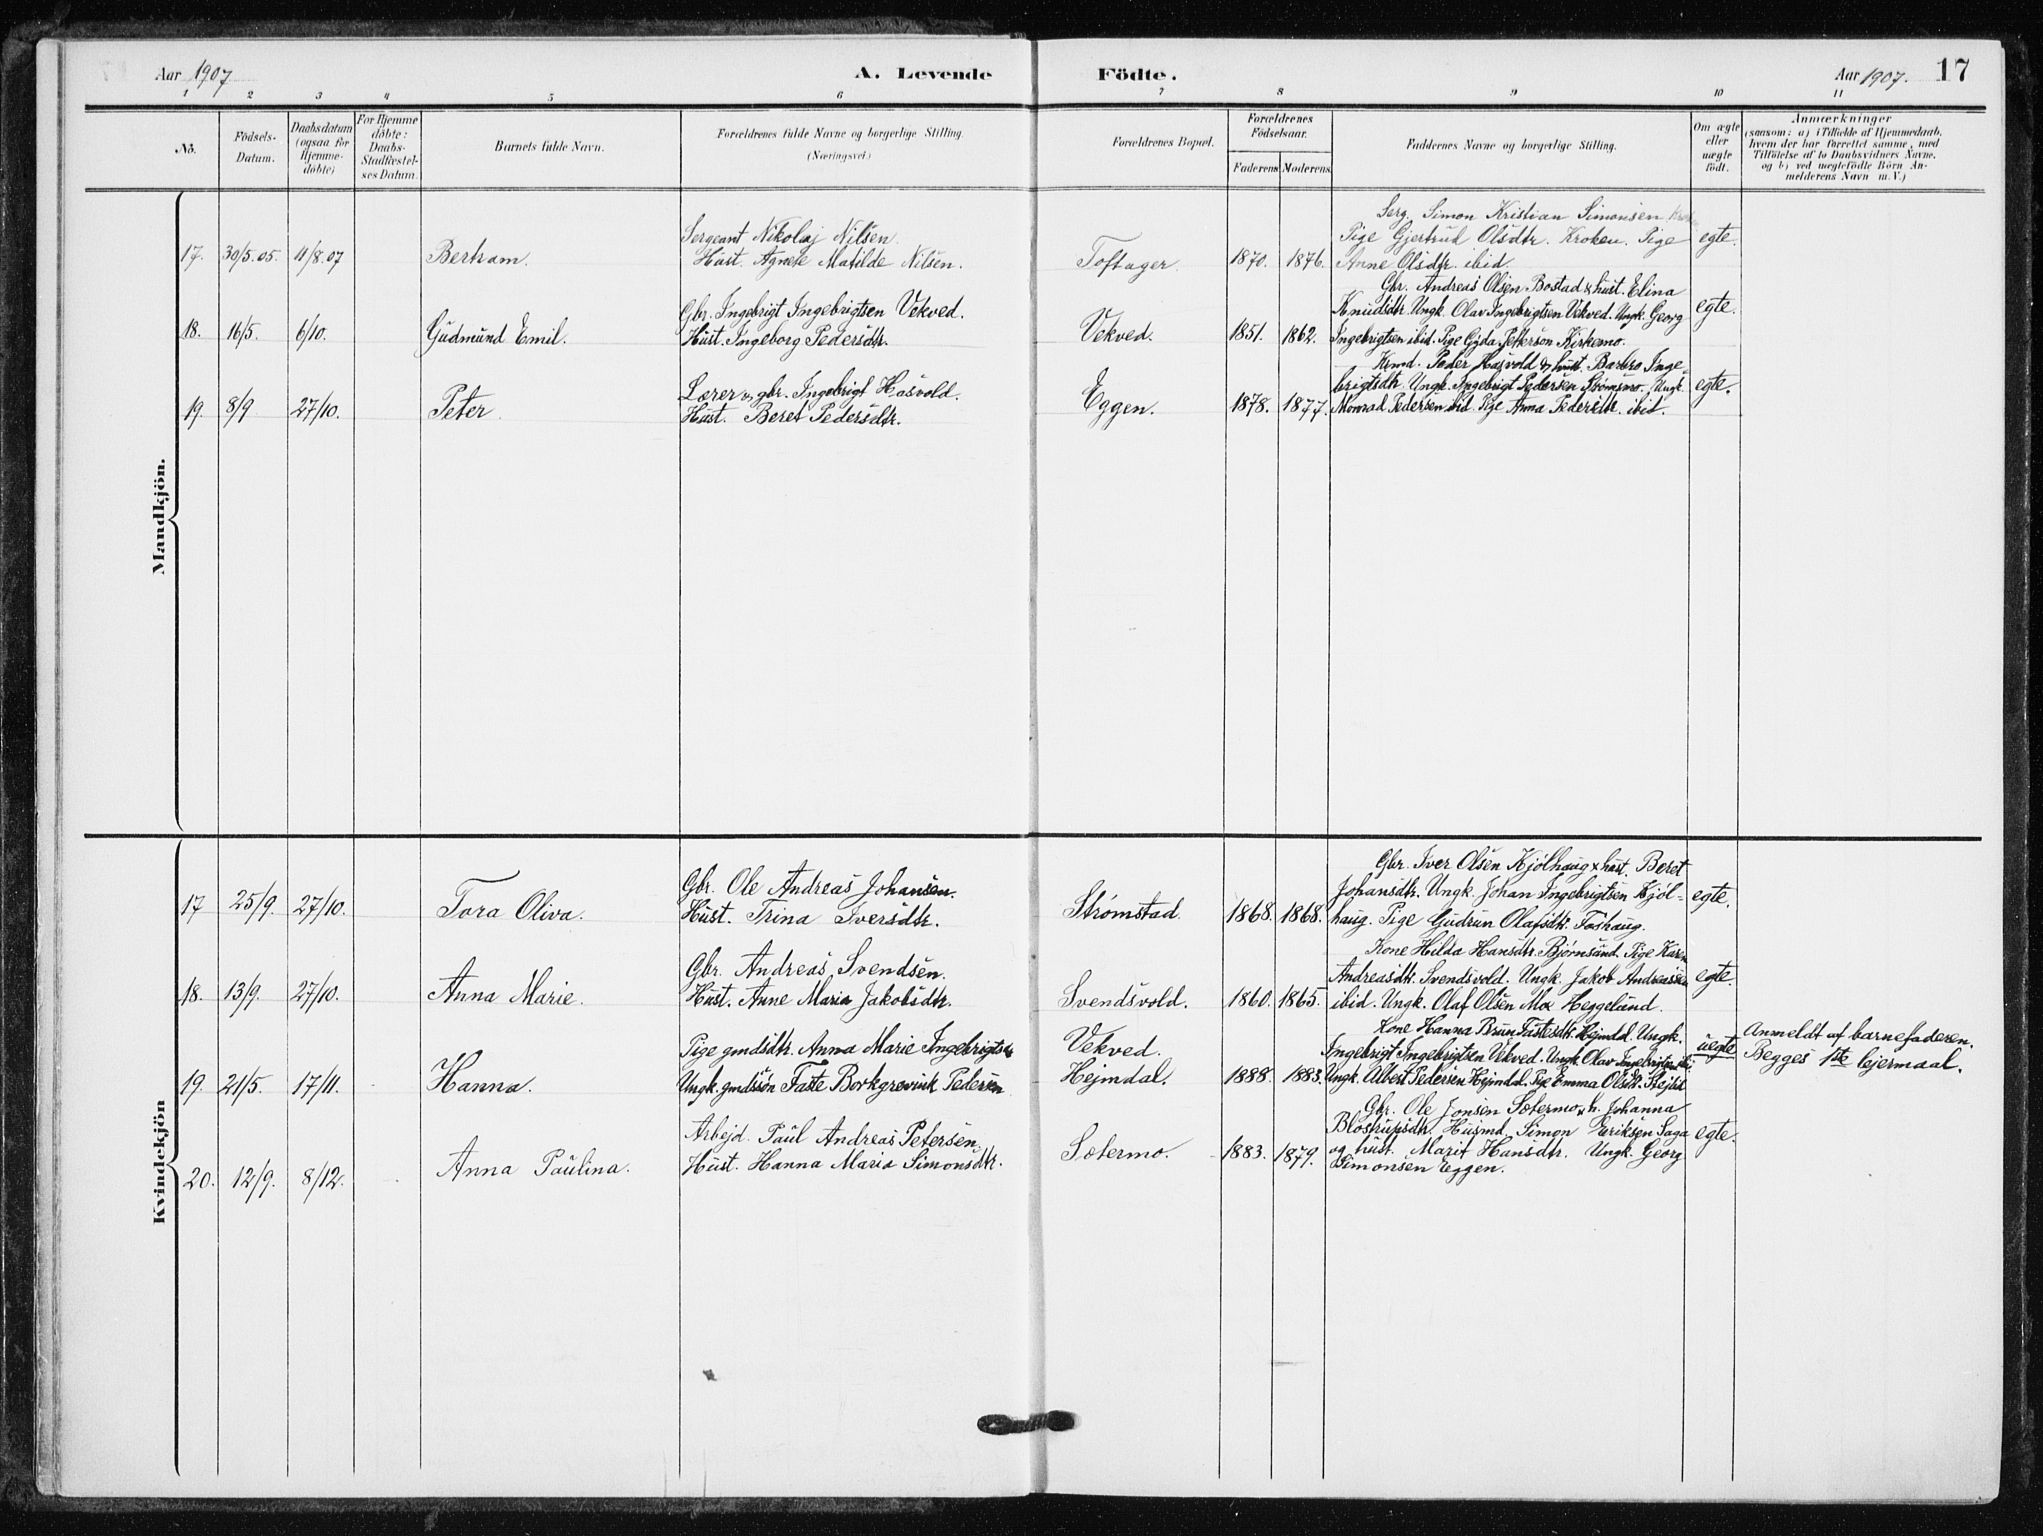 Aar 1907 A. Levende Födte. Aar 1907. 17
1 2 3 4 5 6 7 8 9 10 11
No.
Födsels-
Datum.
Daabsdatum
(ogsaa for
Hjemme-
döbte)
For Hjemme
döbte:
Daabs-
Stadfæstel-
ses Datum.
Barnets fulde Navn.
Forældrenes fulde Navne og borgerlige Stilling.
(Næringsvei.)
Forældrenes Bopæl.
Forældrenes
Födselsaar.
Faderens Moderens
Faddernes Navne og borgerlige Stilling.
Om ægte
eller
uægte
födt.
Anmærkninger
(saasom: a) i Tilfælde af Hjemmedaab,
hvem der har forrettet samme, med
Tilföielse af to Daabsvidners Navne,
og b) ved uægtefödte Börn An-
melderens Navn m. V.)
Mandkjön.
17. 30/5.05. 11/8.07 Bertram.
Sergeant Nikolaj Nilsen.
Hust. Agnete Matilde Nilsen.
Toftager. 1870. 1876.
Serg. Simon Kristian Simonsen
Pige Gjertrud Olsdtr. Kroken. Pige
Anne Olsdtr. ibid.
egte.
18. 16/5. 6/10. Gudmund Emil.
Gbr. Ingebrigt Ingebrigtsen Vekved.
Hust. Ingeborg Pedersdtr.
Vekved. 1851. 1862.
Gbr. Andreas Olsen Bostad & hust. Elina
Knudsdtr. Ungk. Olav Ingebrigtsen Vekved. Ungk. Georg
Ingebrigtsen ibid. Pige Gyda Petterson Kirkemo.
egte.
19. 8/9 27/10. Peter
Lærer & gbr. Ingebrigt Hasvold.
Hust. Beret Pedersdtr.
Eggen. 1878. 1877.
Kmd. Peder Hasvold & hust. Barbro Inge-
brigtsdtr. Ungk. Ingebrigt Pedersen Strømsmo. Ungk.
Monrad Pedersen ibid. Pige Anna Pedersdtr. ibid.
egte.
Kvindekjön
17 25/9. 27/10. Tora Oliva.
Gbr. Ole Andreas Johansen.
Hust. Trina Iversdtr.
Strømstad. 1868. 1868.
Gbr. Iver Olsen Kjølhaug & hust. Beret
Johansdtr. Ungk. Johan Ingebrigtsen Kjøl-
haug. Pige Gudrun Olafsdtr. Foshaug.
egte.
18. 13/9. 27/10. Anna Marie.
Gbr. Andreas Svendsen.
Hust. Anne Maria Jakobsdtr.
Svendsvold. 1860. 1865.
Kone Hilda Hansdtr. Bjørnsund. Pige Karn
Andreasdtr. Svendsvold. Ungk. Jakob Andreassen
ibid. Ungk. Olaf Olsen Mo Heggelund.
egte.
19. 21/5. 17/11. Hanna.
Pige gmdsdtr. Anna Marie Ingebrigtsdr
Ungk. gmdssøn Faste Borkgrevink Pedersen
Vekved.
Hejmdal. 1888. 1883.
Kone Hanna Brun Fastesdtr. Hejmdal. Ungk.
Ingebrigt Ingebrigtsen Vekved. Ungk. Olav Ingebrigtsen ibid.
Ungk. Albert Pedersen Hejmdal. Pige Emma Olsdtr.
uegte
Anmeldt af barnefaderen.
Begges 1ste lejermaal.
20. 12/9. 8/12. Anna Paulina.
Arbejd. Paul Andreas Petersen.
Hust. Hanna Maria Simonsdtr.
Sætermo. 1883. 1879.
Gbr. Ole Jonsen Sætermo & h. Johanna
Blostrupsdtr. Husmd. Simon Eriksen Saga
og hust. Marit Hansdtr. Ungk. Georg
Simonsen Eggen.
egte.